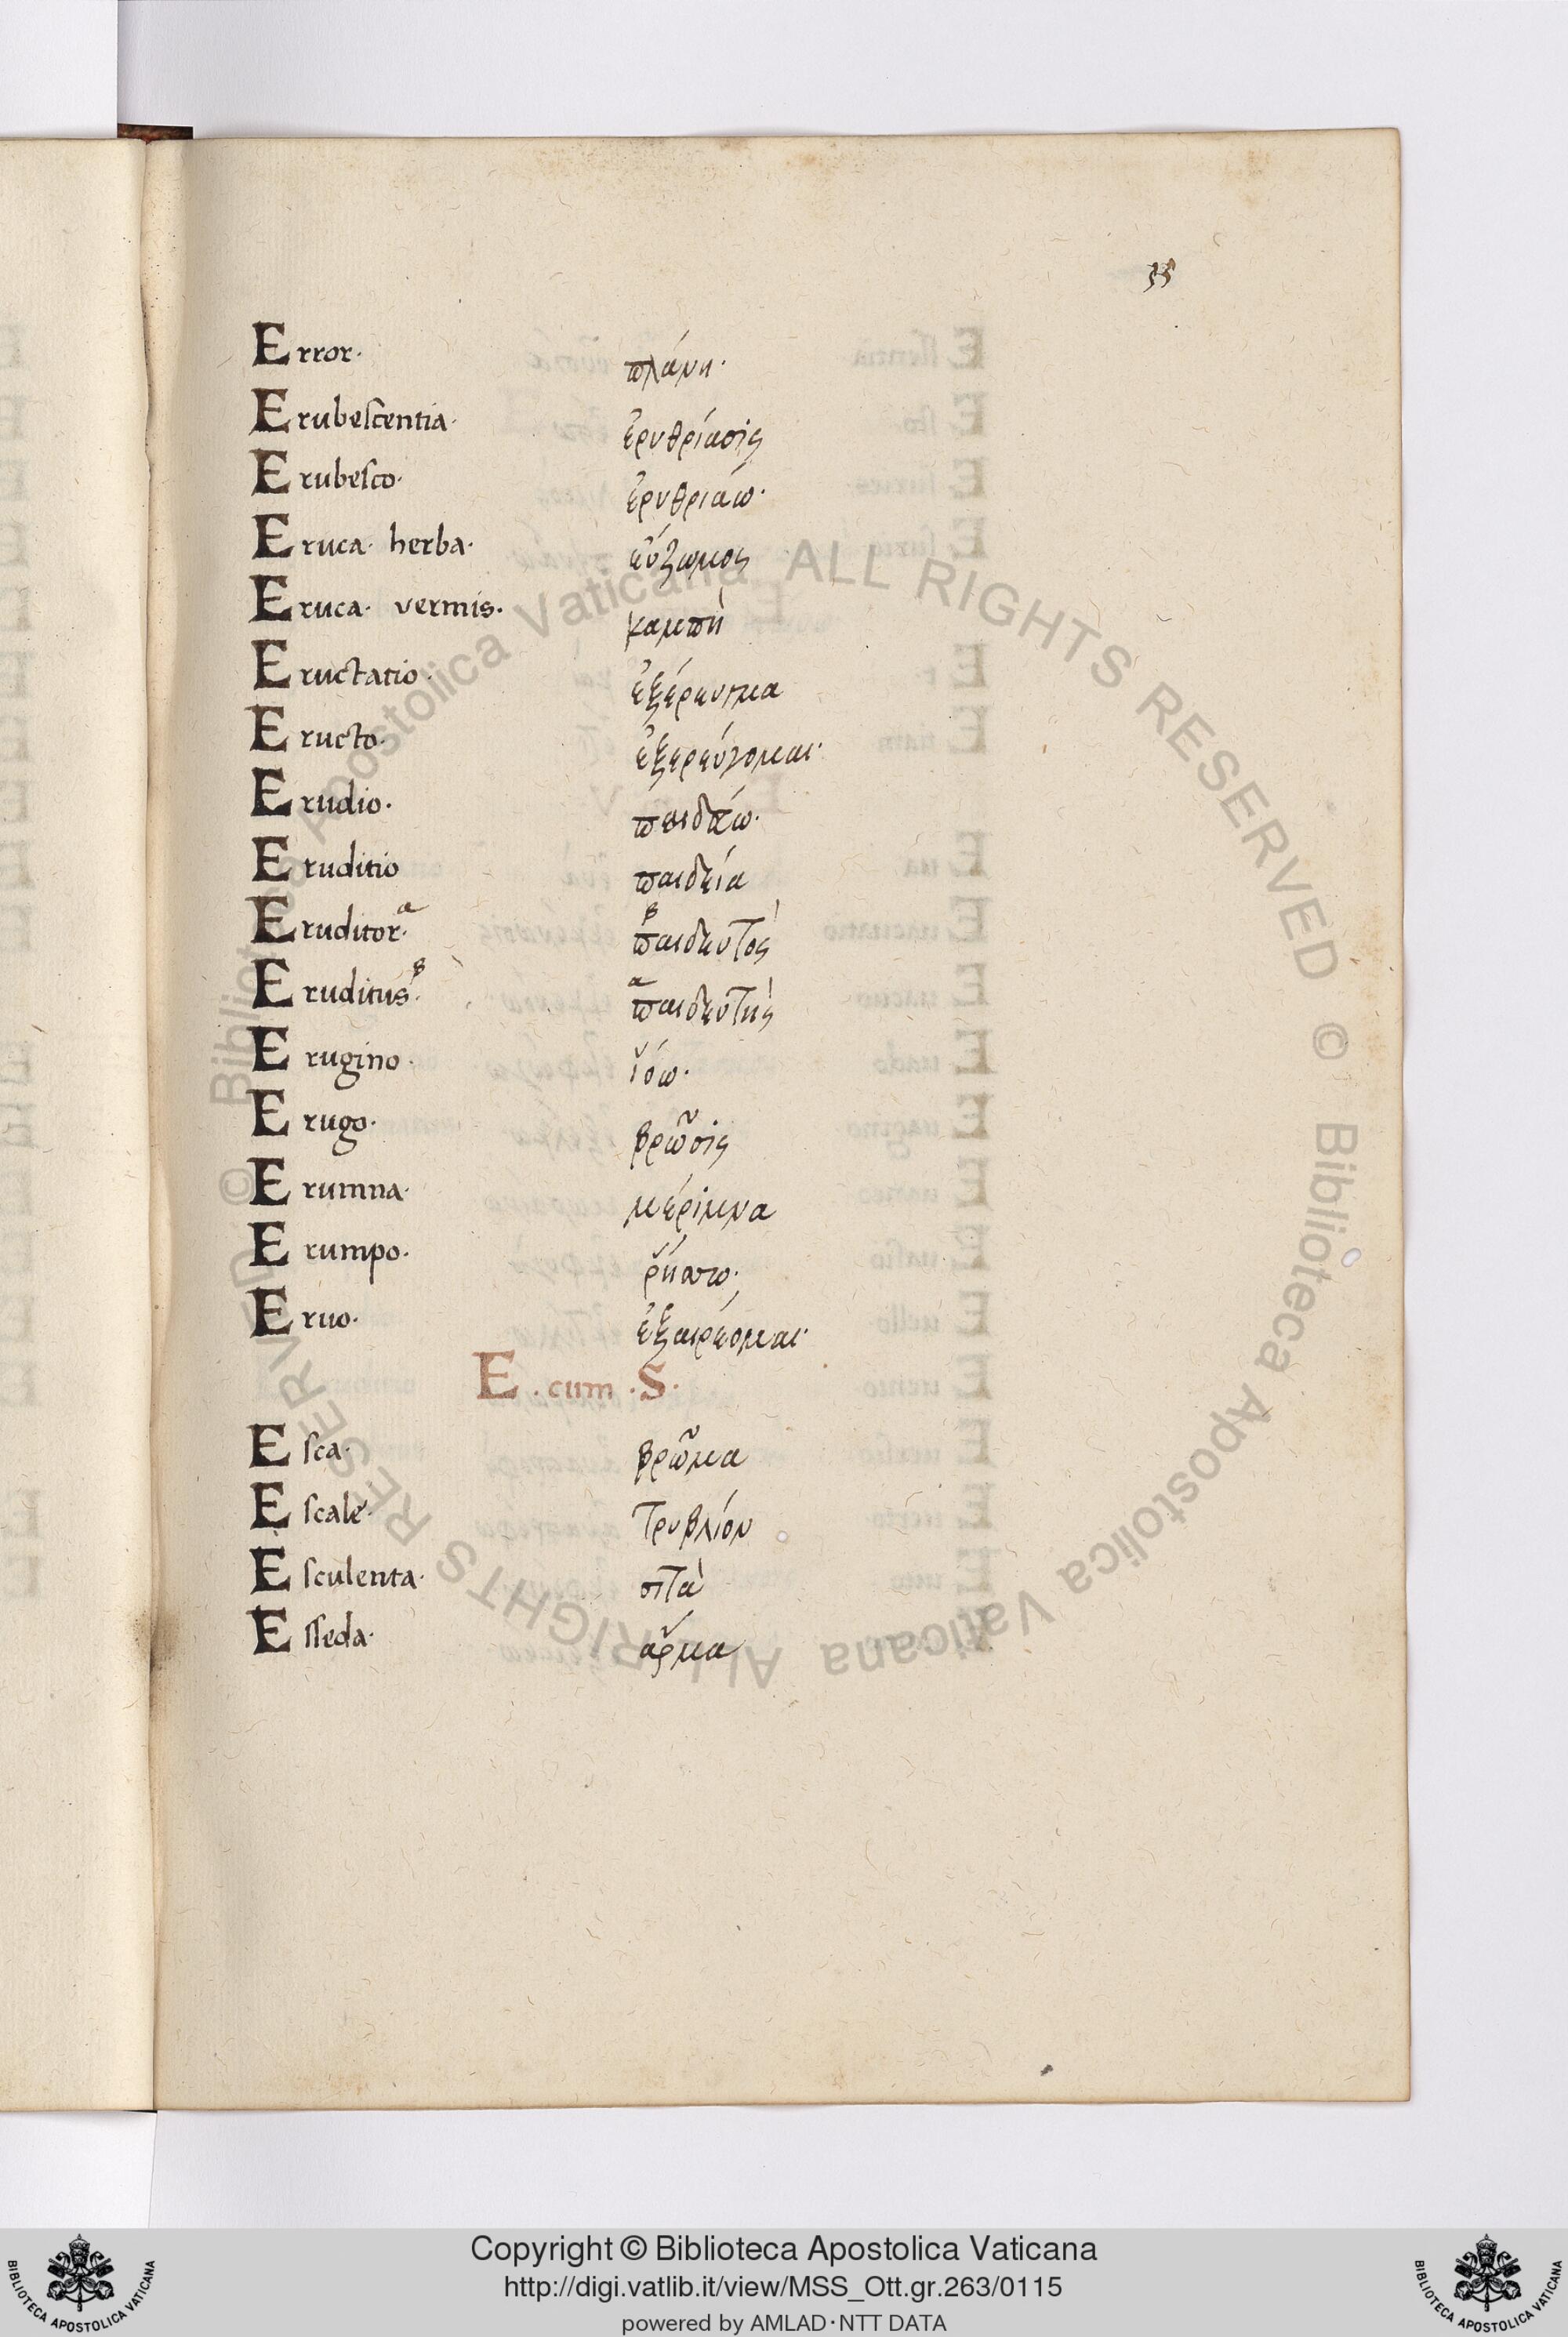 55
Error· πλάνη·
Erubescentia· ἐρυθρίασις
Erubesco· ἐρυθριάω·
Eruca· herba· εύζωμος
Eruca· vermis· καμπὴ
Eructatio· ἐξέρευσμα
Eructo· ἐξερεύγομαι·
Erudio·
Eruditio παιδεία
Eruditor·α β παιδευτὸς
Eruditus·β α παιδευτὴς
Erugino· ἰόω·
Erugo· βρῶσις
Erumna· μέριμνα
Erumpo· ῥήσσω·
Eruo· ἐξαιρέομαι·
E·cum·S·
Esca· βρῶμα
Escale· τρυβλίον
Esculenta· σιτὰ
Esseda· ἅρμα
© Biblioteca Apostolica Vaticana ALL RIGHTS RESERVED © Biblioteca Apostolica Vaticana ALL RIGHTS RESERVED
Copyright © Biblioteca Apostolica Vaticana
http://digi.vatlib.it/view/MSS_Ott.gr.263/0115
powered by AMLAD·NTT DATA
BIBLIOTECA APOSTOLICA VATICANA
BIBLIOTECA APOSTOLICA VATICANA